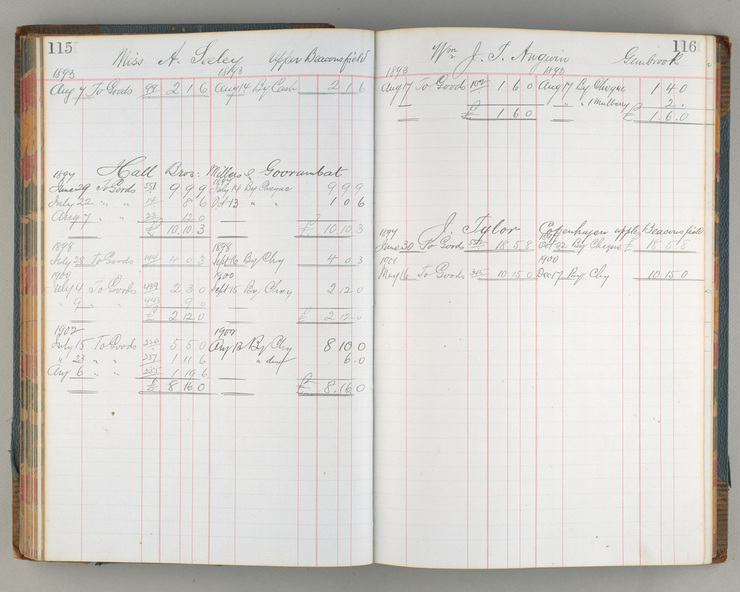 115
Miss A. Seeley Upper Beaconsfield
1893 1893
Aug 7 To Goods 99 2 1 6 Aug 14 By Cash 2 1 6
Hall Bros: Millers & Goorambat
1897 1897
June 29 To Goods 551 9 9 9 July 14 By Cheque 9 9 9
July 22 " " 8 6 Oct 13 " " 10 6
Aug 7 " " 12 0
£ 10.10.3 £ 10.10.3
1898 1898
July 28 To Goods 4 0 3 Sept 16 By Chq 4 0 3
1900 1900
July 4 To Goods 439 2 3 0 Sept 15 By Cheq 2 12 0
9 " " 443 9 0
£ 2 12 0 £ 2 12 0
1902 1902
July 15 To Goods 5 5 0 Aug 13 By Chq 8 10 0
" 23 " " 251 1 11 6 " 6.0
Aug 6 " " 255 1 19 6
£ 8 16 0 £ 8.16 0
116
Wm J. T. Anquin Gembrook
1893 1893
Aug 17 To Goods 104 1 6 0 Aug 17 By Cheque 1 4 0
" " 1 Mulberry 2.
£ 1 6 0 £ 1.6.0
J. Tylor Copenhagen Upper Beaconsfield
1897 1897
June 30 To Goods 18.5.8 Oct 22 By Cheque £ 18.5.8
1900 1900
May 16 To Goods 10.15.0 Dec 17 By Chq 10.15.0